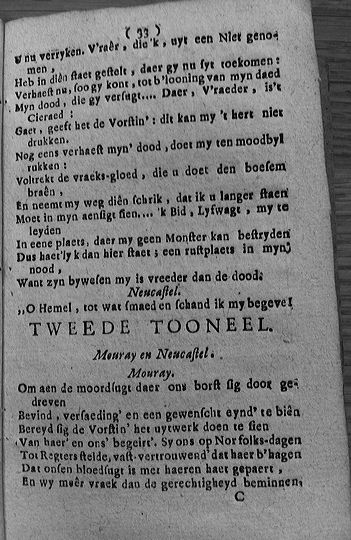 ( 33 )
U nu verryken. V'raêr, die 'k, uyt een Niet geno-
men,
Heb in diên staet gestelt, daer gy nu syt toekomen:
Verhaest nu, soo gy kont, tot b'looning van myn daed
Myn dood, die gy versugt.... Daer, V'raeder, is't
Cieraed:
Gaet, geeft het de Vorstin': dit kan my 't hert niet
drukken.
Nog eens verhaest myn' dood, doet my ten moodbyl
rukken:
Voltrekt de vraeks-gloed, die u doet den boesem
braên,
En neemt my weg diên schrik, dat ik u langer staen
Moet in myn aensigt sien.... 'k Bid, Lyfwagt, my te
leyden
In eene plaets, daer my geen Monster kan bestryden
Dus haet'lyk dan hier staet; een rustplaets in myn
nood,
Want zyn bywesen my is vreeder dan de dood.
Neucastel.
,,O Hemel, tot wat smaed en schand ik my begeve!
TWEEDE TOONEEL.
Mouray en Neucastel.
Mouray.
Om aen de moordsugt daer ons borst sig door ge-
dreven
Bevind, versaeding' en een gewenscht eynd' te biên
Bereyd sig de Vorstin' het uytwerk doen te sien
Van haer' en ons' begeirt'. Sy ons op Norfolks-dagen
Tot Regters stelde, vast-vertrouwend' dat haer b'hagen
Dat onsen bloedsugt is met haeren haet gepaert,
En wy meêr vraek dan de gerechtigheyd beminnen,
C